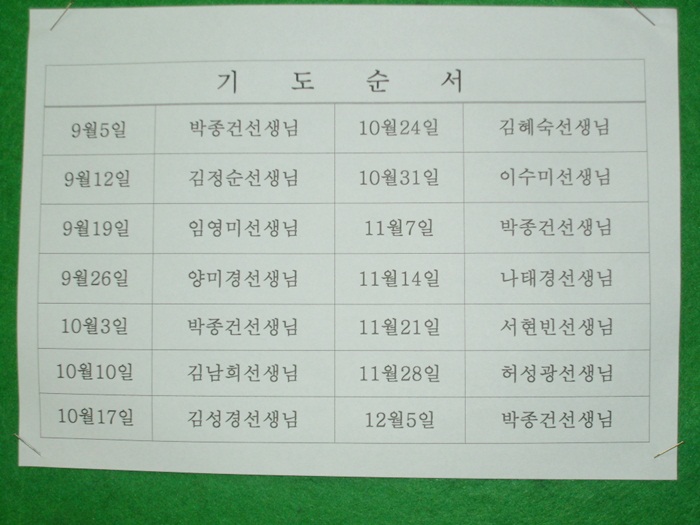 기 도 순 서
9월5일 박종건선생님 10월24일 김혜숙선생님
9월12일 김정순선생님 10월31일 이수미선생님
9월19일 임영미선생님 11월7일 박종건선생님
9월26일 양미경선생님 11월14일 나태경선생님
10월3일 박종건선생님 11월21일 서현빈선생님
10월10일 김남희선생님 11월28일 허성광선생님
10월17일 김성경선생님 12월5일 박종건선생님